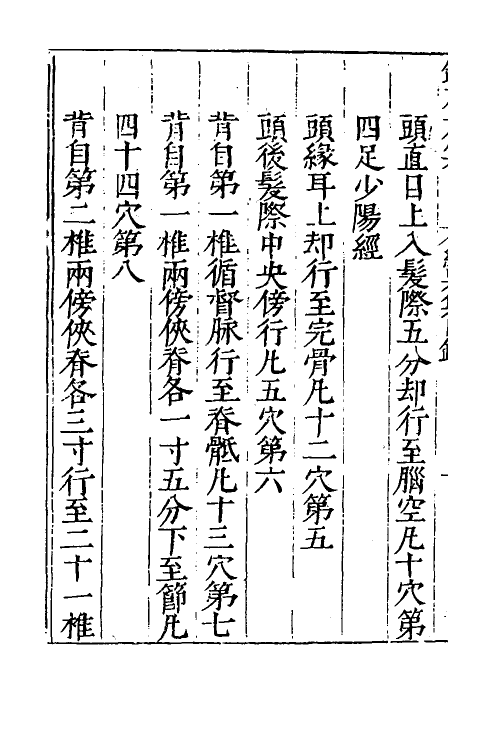 頭直目上入髮際五分却行至腦空凡十穴第
四足少陽經
頭緣耳上却行至完骨凡十二穴第五
頭後髮際中央傍行凡五穴第六
背自第一椎循督脉行至脊骶凡十三穴第七
背自第一椎兩傍俠脊各一寸五分下至節凡
四十四穴第八
背自第二椎兩傍俠脊各三寸行至二十一椎